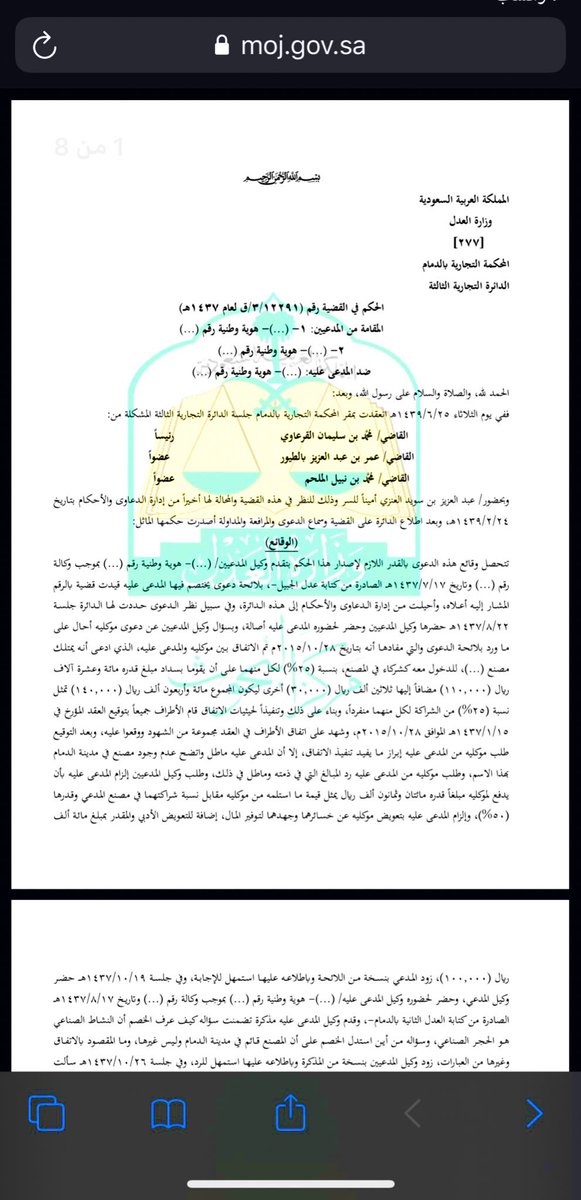 moj.gov.sa
1 من 8
بسم الله الرحمن الرحيم
المملكة العربية السعودية
وزارة العدل
[٢٧٧]
المحكمة التجارية بالدمام
الدائرة التجارية الثالثة
الحكم في القضية رقم (٣/١٢٢٩١/ق لعام ١٤٣٧هـ)
المقامة من المدعيين: ١- (...)- هوية وطنية رقم (...)
٢- (...)- هوية وطنية رقم (...)
ضد المدعى عليه: (...)- هوية وطنية رقم (...)
الحمد لله، والصلاة والسلام على رسول الله، وبعد:
ففي يوم الثلاثاء ١٤٣٩/٦/٢٥هـ انعقدت بمقر المحكمة التجارية بالدمام جلسة الدائرة التجارية الثالثة المشكلة من:
القاضي/ محمد بن سليمان القرعاوي رئيساً
القاضي/ عمر بن عبد العزيز بالطيور عضواً
القاضي/ محمد بن نبيل الملحم عضواً
وبحضور/ عبد العزيز بن سويد العنزي أميناً للسر وذلك للنظر في هذه القضية والمحالة لها أخيراً من إدارة الدعاوى والأحكام بتاريخ
١٤٣٩/٢/٢٤هـ، وبعد اطلاع الدائرة على القضية وسماع الدعوى والمرافعة والمداولة أصدرت حكمها الماثل:
(الوقائع)
تتحصل وقائع هذه الدعوى بالقدر اللازم لإصدار هذا الحكم بتقدم وكيل المدعيين/ (...)- هوية وطنية رقم (...) بموجب وكالة
رقم (...) وتاريخ ١٤٣٧/٧/١٧هـ الصادرة من كتابة عدل الجبيل-، بلائحة دعوى يختصم فيها المدعى عليه قيدت قضية بالرقم
المشار إليه أعلاه، وأحيلت من إدارة الدعاوى والأحكام إلى هذه الدائرة، وفي سبيل نظر الدعوى حددت لها الدائرة جلسة
١٤٣٧/٨/٢٢هـ حضرها وكيل المدعيين وحضر لحضوره المدعى عليه أصالة، وبسؤال وكيل المدعيين عن دعوى موكليه أحال على
ما ورد بلائحة الدعوى والتي مفادها أنه بتاريخ ٢٠١٥/١٠/٢٨م تم الاتفاق بين موكليه والمدعى عليه، الذي ادعى أنه يمتلك
مصنع (...)، للدخول معه كشركاء في المصنع، بنسبة (٢٥%) لكل منهما على أن يقوما بسداد مبلغ قدره مائة وعشرة آلاف
ريال (١١٠,٠٠٠) مضافاً إليها ثلاثين ألف ريال (٣٠,٠٠٠) أخرى ليكون المجموع مائة وأربعون ألف ريال (١٤٠,٠٠٠) تمثل
نسبة (٢٥%) من الشراكة لكل منهما منفرداً، وبناء على ذلك وتنفيذاً لحيثيات الاتفاق قام الأطراف جميعاً بتوقيع العقد المؤرخ في
١٤٣٧/١/١٥هـ الموافق ٢٠١٥/١٠/٢٨م، وشهد على اتفاق الأطراف في العقد مجموعة من الشهود ووقعوا عليه، وبعد التوقيع
طلب موكليه من المدعى عليه إبراز ما يفيد تنفيذ الاتفاق، إلا أن المدعى عليه ماطل واتضح عدم وجود مصنع في مدينة الدمام
بهذا الاسم، وطلب موكليه من المدعى عليه رد المبالغ التي في ذمته وماطل في ذلك، وطلب وكيل المدعيين إلزام المدعى عليه بأن
يدفع لموكليه مبلغاً قدره مائتان وثمانون ألف ريال يمثل قيمة ما استلمه من موكليه مقابل نسبة شراكتهما في مصنع المدعي وقدرها
(٥٠%)، وإلزام المدعى عليه بتعويض موكليه عن خسائرهما وجهدهما لتوفير المال، إضافة للتعويض الأدبي والمقدر بمبلغ مائة ألف
ريال (١٠٠,٠٠٠)، زود المدعي بنسخة من اللائحة وباطلاعه عليها استمهل للإجابة، وفي جلسة ١٤٣٧/١٠/١٩هـ حضر
وكيل المدعي، وحضر لحضوره وكيل المدعى عليه/ (...)- هوية وطنية رقم (...) بموجب وكالة رقم (...) وتاريخ ١٤٣٧/٨/١٧هـ
الصادرة من كتابة العدل الثانية بالدمام-، وقدم وكيل المدعى عليه مذكرة تضمنت سؤاله كيف عرف الخصم أن النشاط الصناعي
هو الحجر الصناعي، وسؤاله من أين استدل الخصم على أن المصنع قائم في مدينة الدمام وليس غيرها، وما المقصود بالاتفاق
وغيرها من العبارات، زود وكيل المدعيين بنسخة من المذكرة وباطلاعه عليها استمهل للرد، وفي جلسة ١٤٣٧/١٠/٢٦هـ سألت